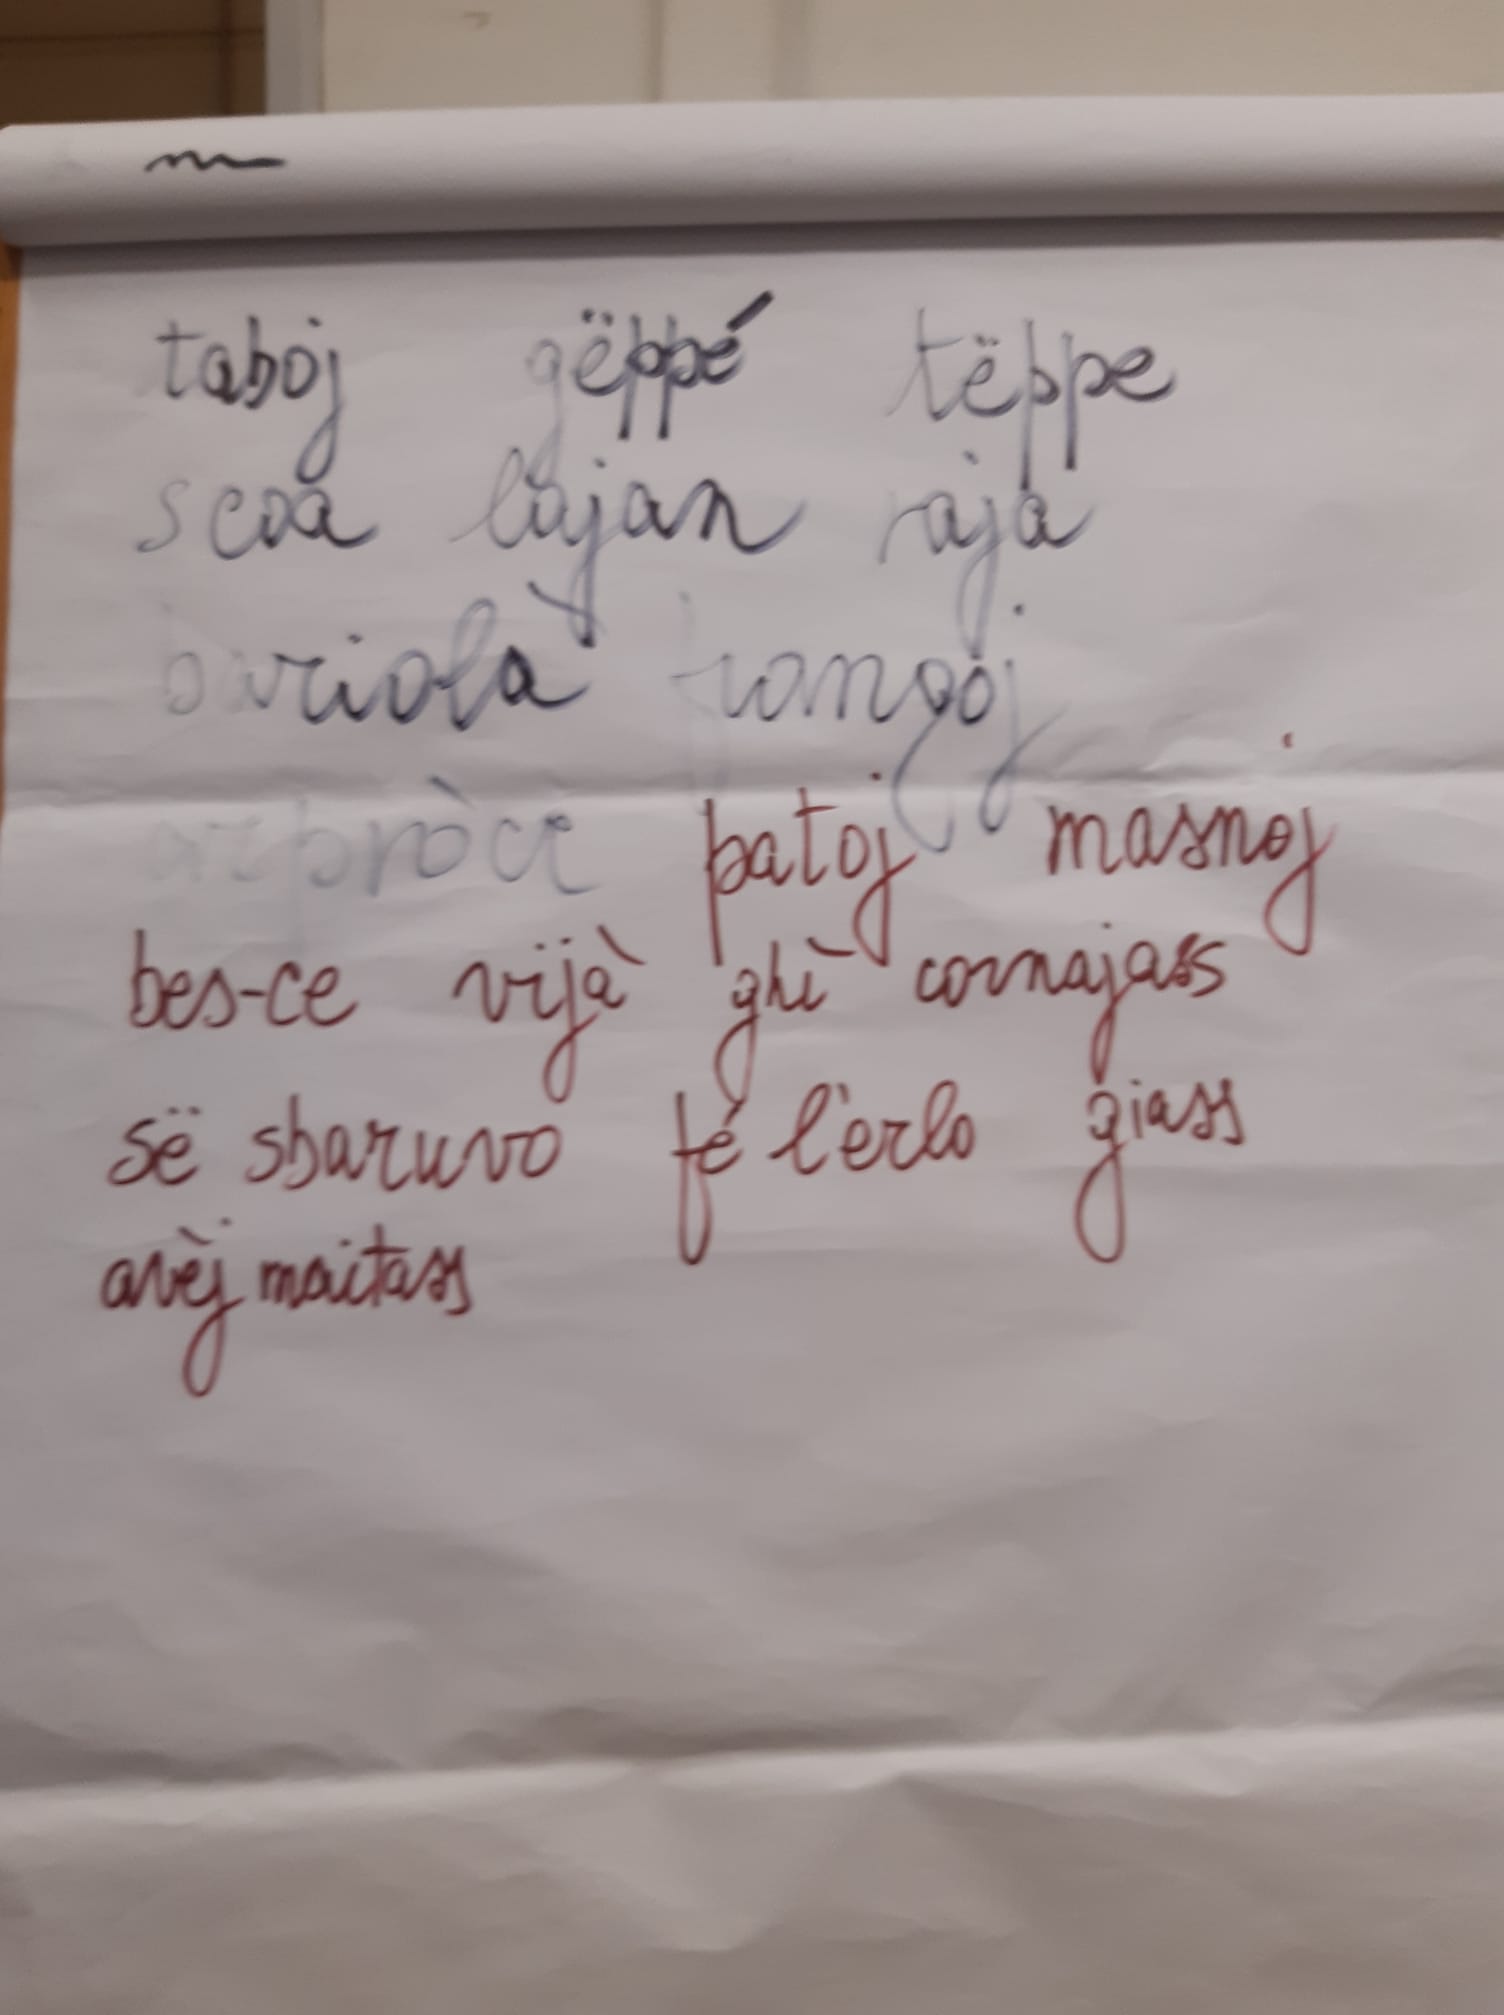 taboj gëppé tëppe
scoa lajan rajà
bariolà frangoj
arpròce patoj masnoj
bes-ce vijà ghì cornajass
së sbaruvo fé l'erlo giass
avèj maitass